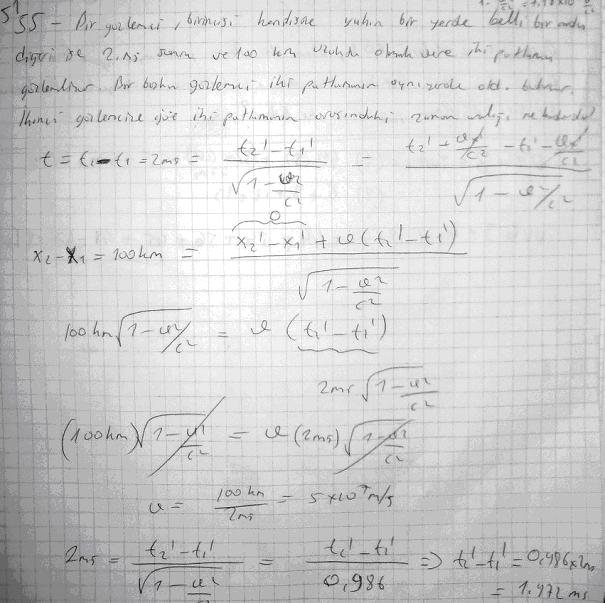 55 - Bir gözlemci, birincisi kendisine yakın bir yerde belli bir anda
diğeri ise 2 ms sonra ve 100 km uzakta olmak üzere iki patlama
gözlemliyor. Bir başka gözlemci iki patlamanın aynı yerde old. bulunur.
İkinci gözlemciye göre iki patlamanın arasındaki zaman aralığı ne kadardır?
t = t₁ - t₁ = 2ms = t₂' - t₁' / √1 - v²/c² = t₂' + vx'/c² - t₁' - vx'/c² / √1 - v²/c²
0
x₂ - x₁ = 100km = x₂' - x₁' + v(t₂' - t₁') / √1 - v²/c²
100km √1 - v²/c² = v (t₂' - t₁')
2ms √1 - v²/c²
(100km) √1 - v²/c² = v (2ms) √1 - v²/c²
v = 100km / 2ms = 5x10⁷ m/s
2ms = t₂' - t₁' / √1 - v²/c² = t₂' - t₁' / 0,986 ⇒ t₂' - t₁' = 0,986x2ms
= 1.972 ms